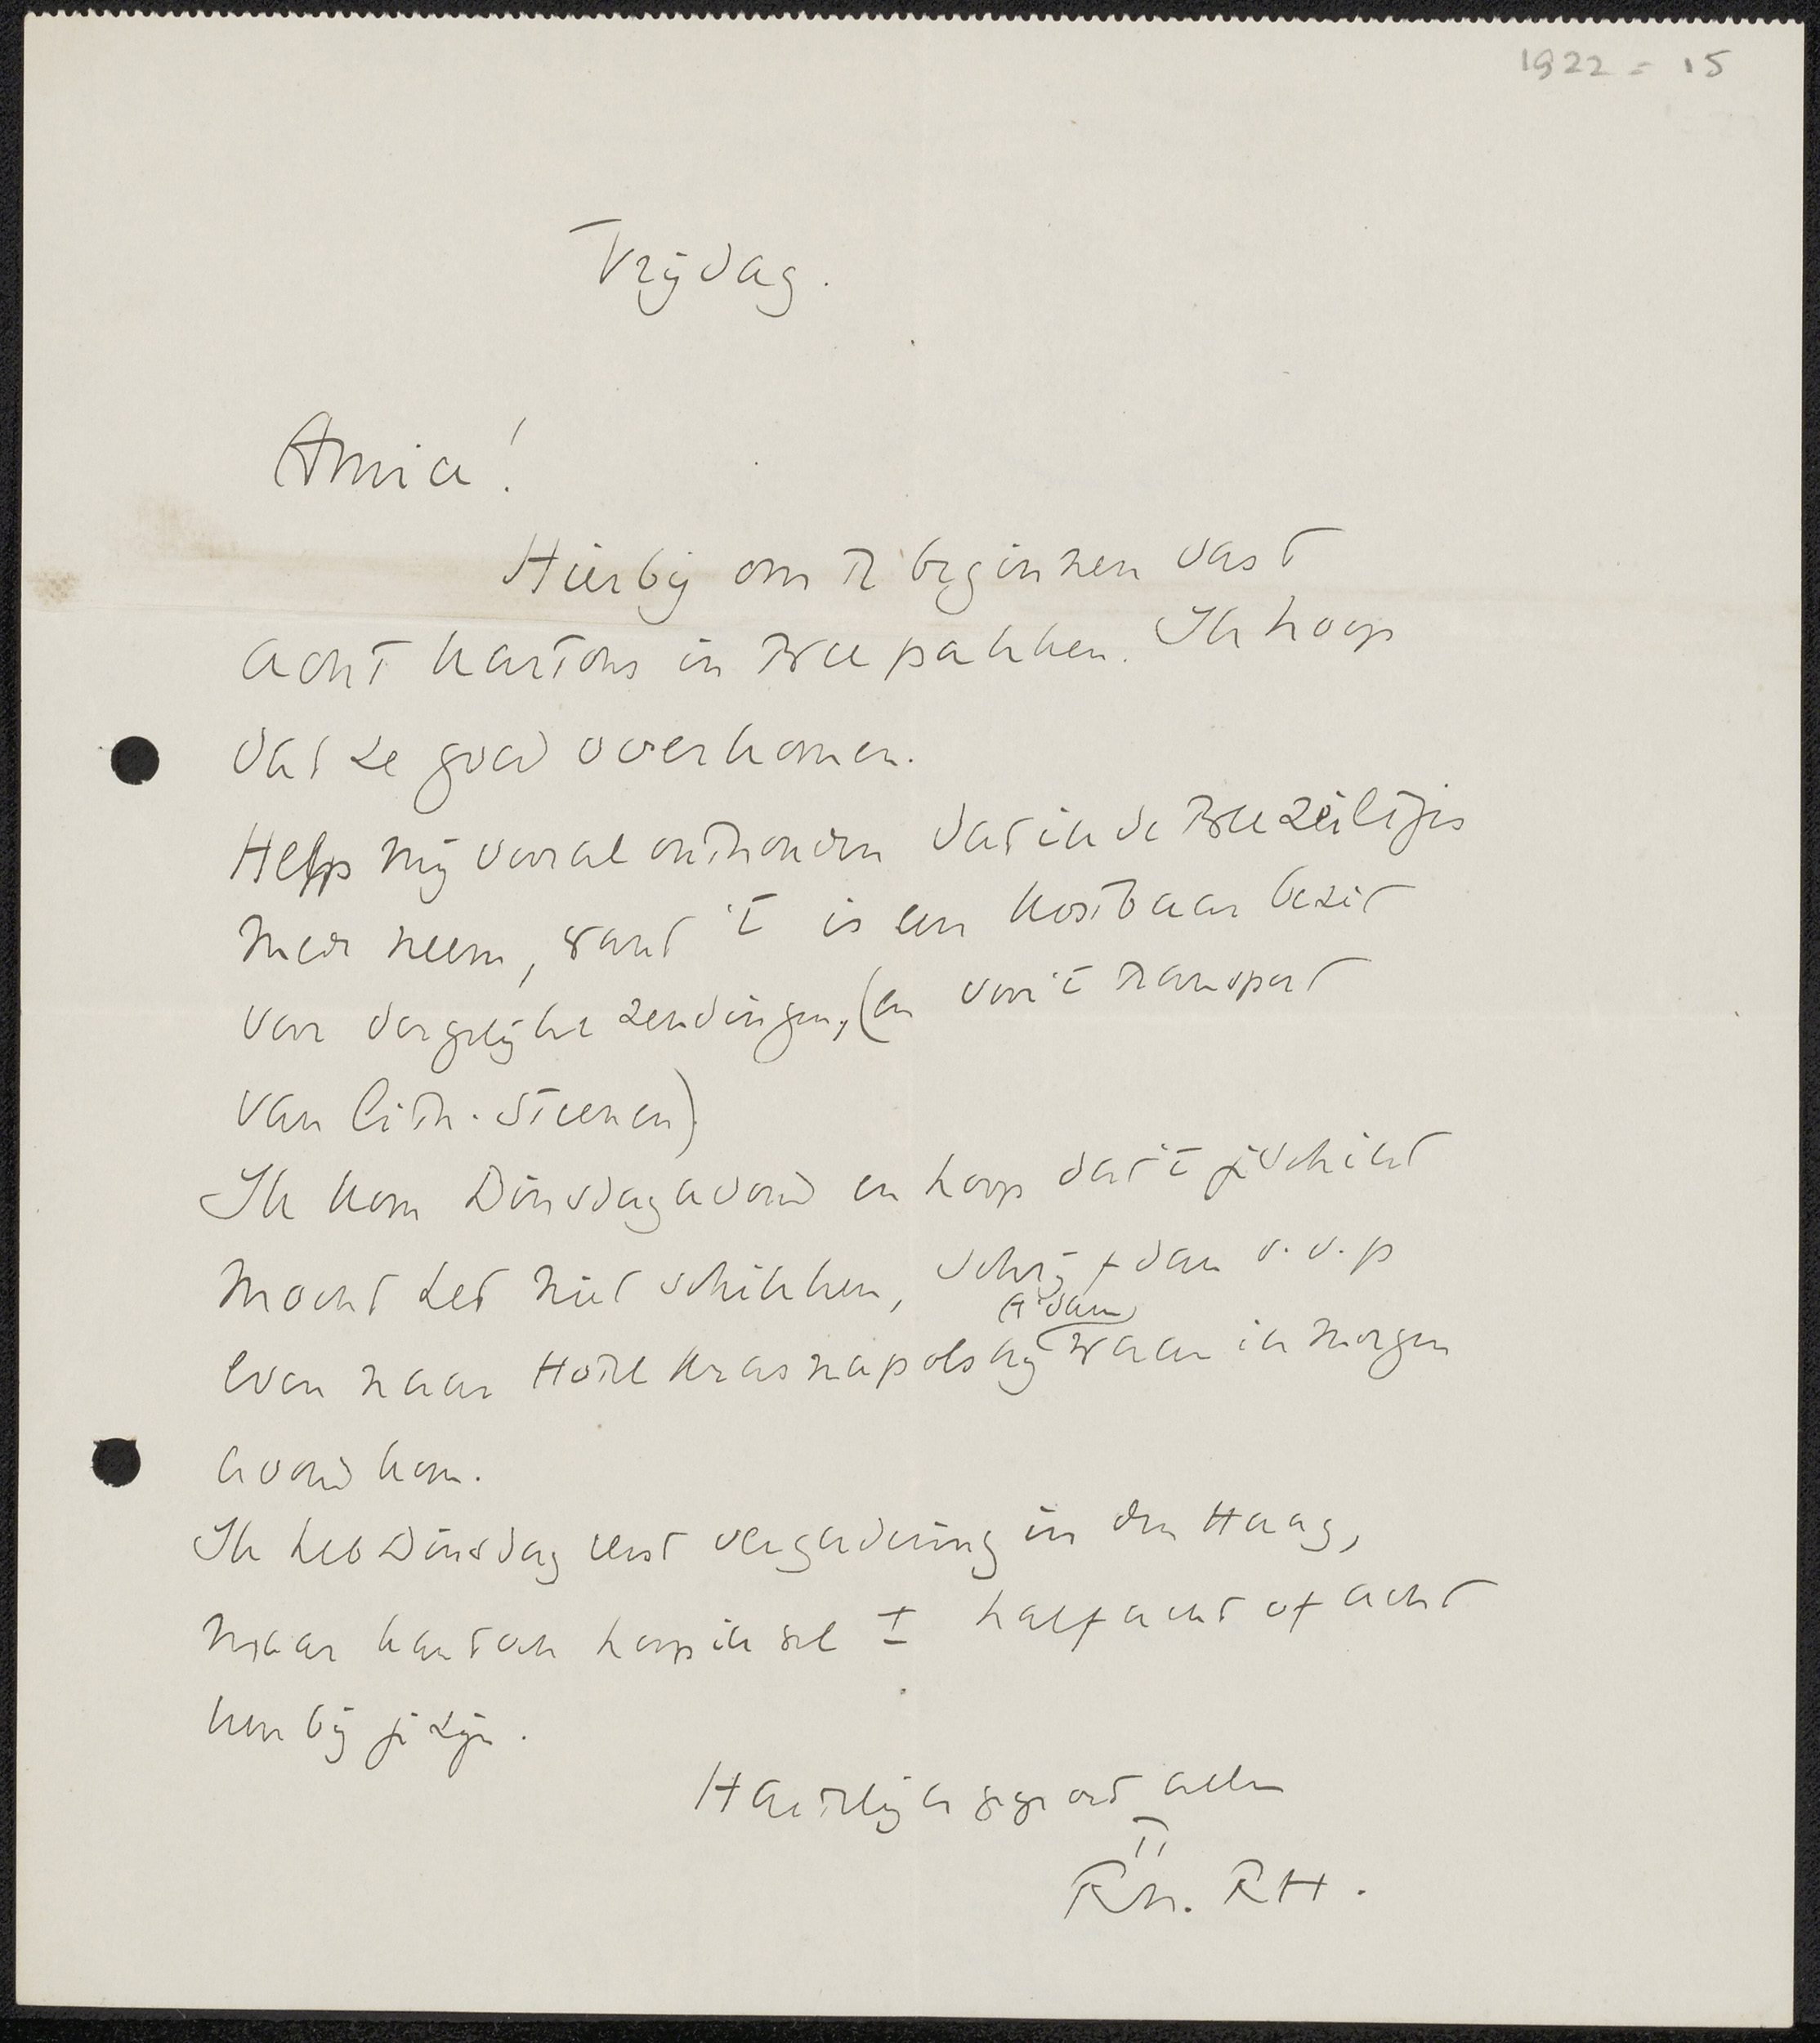 1922 = 15
Vrijdag.
Amice!
Hierbij om te beginnen vast
acht kartons in twee pakken. Ik hoop
dat ze goed overkomen.
Help mij vooral onthouden dat ik de twee zeiltjes
mede neem, want 't is een kostbaar bezit
voor dergelijke zendingen, (en voor 't transport
van lith. steenen)
Ik kom Dinsdagavond en hoop dat 't je schikt
Mocht het niet schikken, schrijf dan s.v.p
even naar Hotel Krasnapolsky (A'dam) waar ik morgen
avond kom.
Ik heb Dinsdag eerst vergadering in den Haag,
maar kan toch hoop ik wel ± half acht of acht
uur bij je zijn.
Hartelijk gegroet allen
tt
Rn. RH.